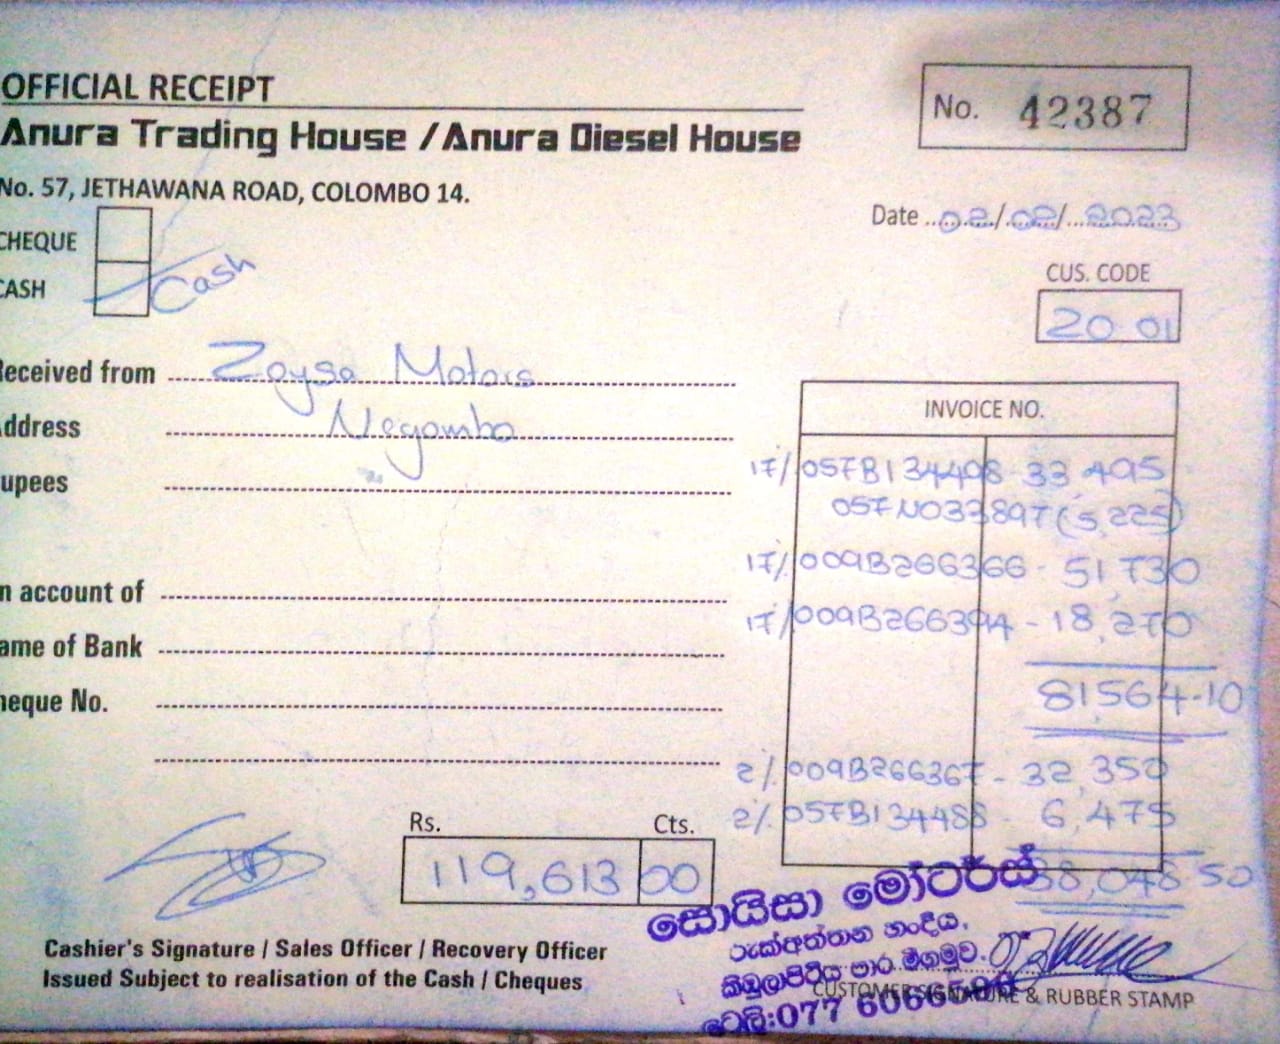 OFFICIAL RECEIPT
No. 42387
Anura Trading House / Anura Diesel House
No. 57, JETHAWANA ROAD, COLOMBO 14.
Date 02/02/2023
CHEQUE
CASH Cash
CUS. CODE
20 01
Received from Zoysa Motors
Address Negombo
upees
INVOICE NO.
17/. 057B134498 - 33,495
057N033897 (5,225)
17/. 009B266366 - 51,730
17/. 009B266394 - 18,270
81,564-10
n account of
ame of Bank
heque No.
2/. 009B266367 - 32,350
2/. 057B134488 - 6,475
38,048 50
Rs. Cts.
119,613 00
Cashier's Signature / Sales Officer / Recovery Officer
Issued Subject to realisation of the Cash / Cheques
සොයිසා මෝටර්ස්
රුක්අත්තන හංදිය,
කිඹුලාපිටිය පාර මීගමුව.
ටෙලි:077
CUSTOMER SIGNATURE & RUBBER STAMP